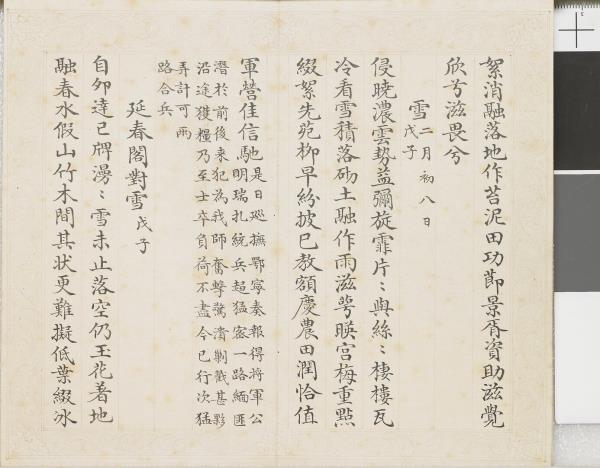 絮消融落地作苔泥田功節景胥資助滋覺
欣兮滋畏兮
雪
二月初八日
戊子
侵曉濃雲勢益彌旋霏片〻與絲〻棲樓瓦
冷看雪積落砌土融作雨滋萼暎宮梅重㸃
綴絮先苑栁早紛披已教額慶農田潤恰值
軍營佳信馳
是日巡撫鄂寧奏報得將軍公
明瑞扎統兵超猛密一路緬匪
潛於前後来犯為我師奮擊驚潰剿戮甚夥
沿途獲糧乃至士卒負荷不盡今已行次猛
弄計可兩
路合兵
延春閣對雪戊子
自夘達巳牌漫〻雪未止落空仍玉花著地
融春水假山竹木閒其狀更難擬低葉綴氷